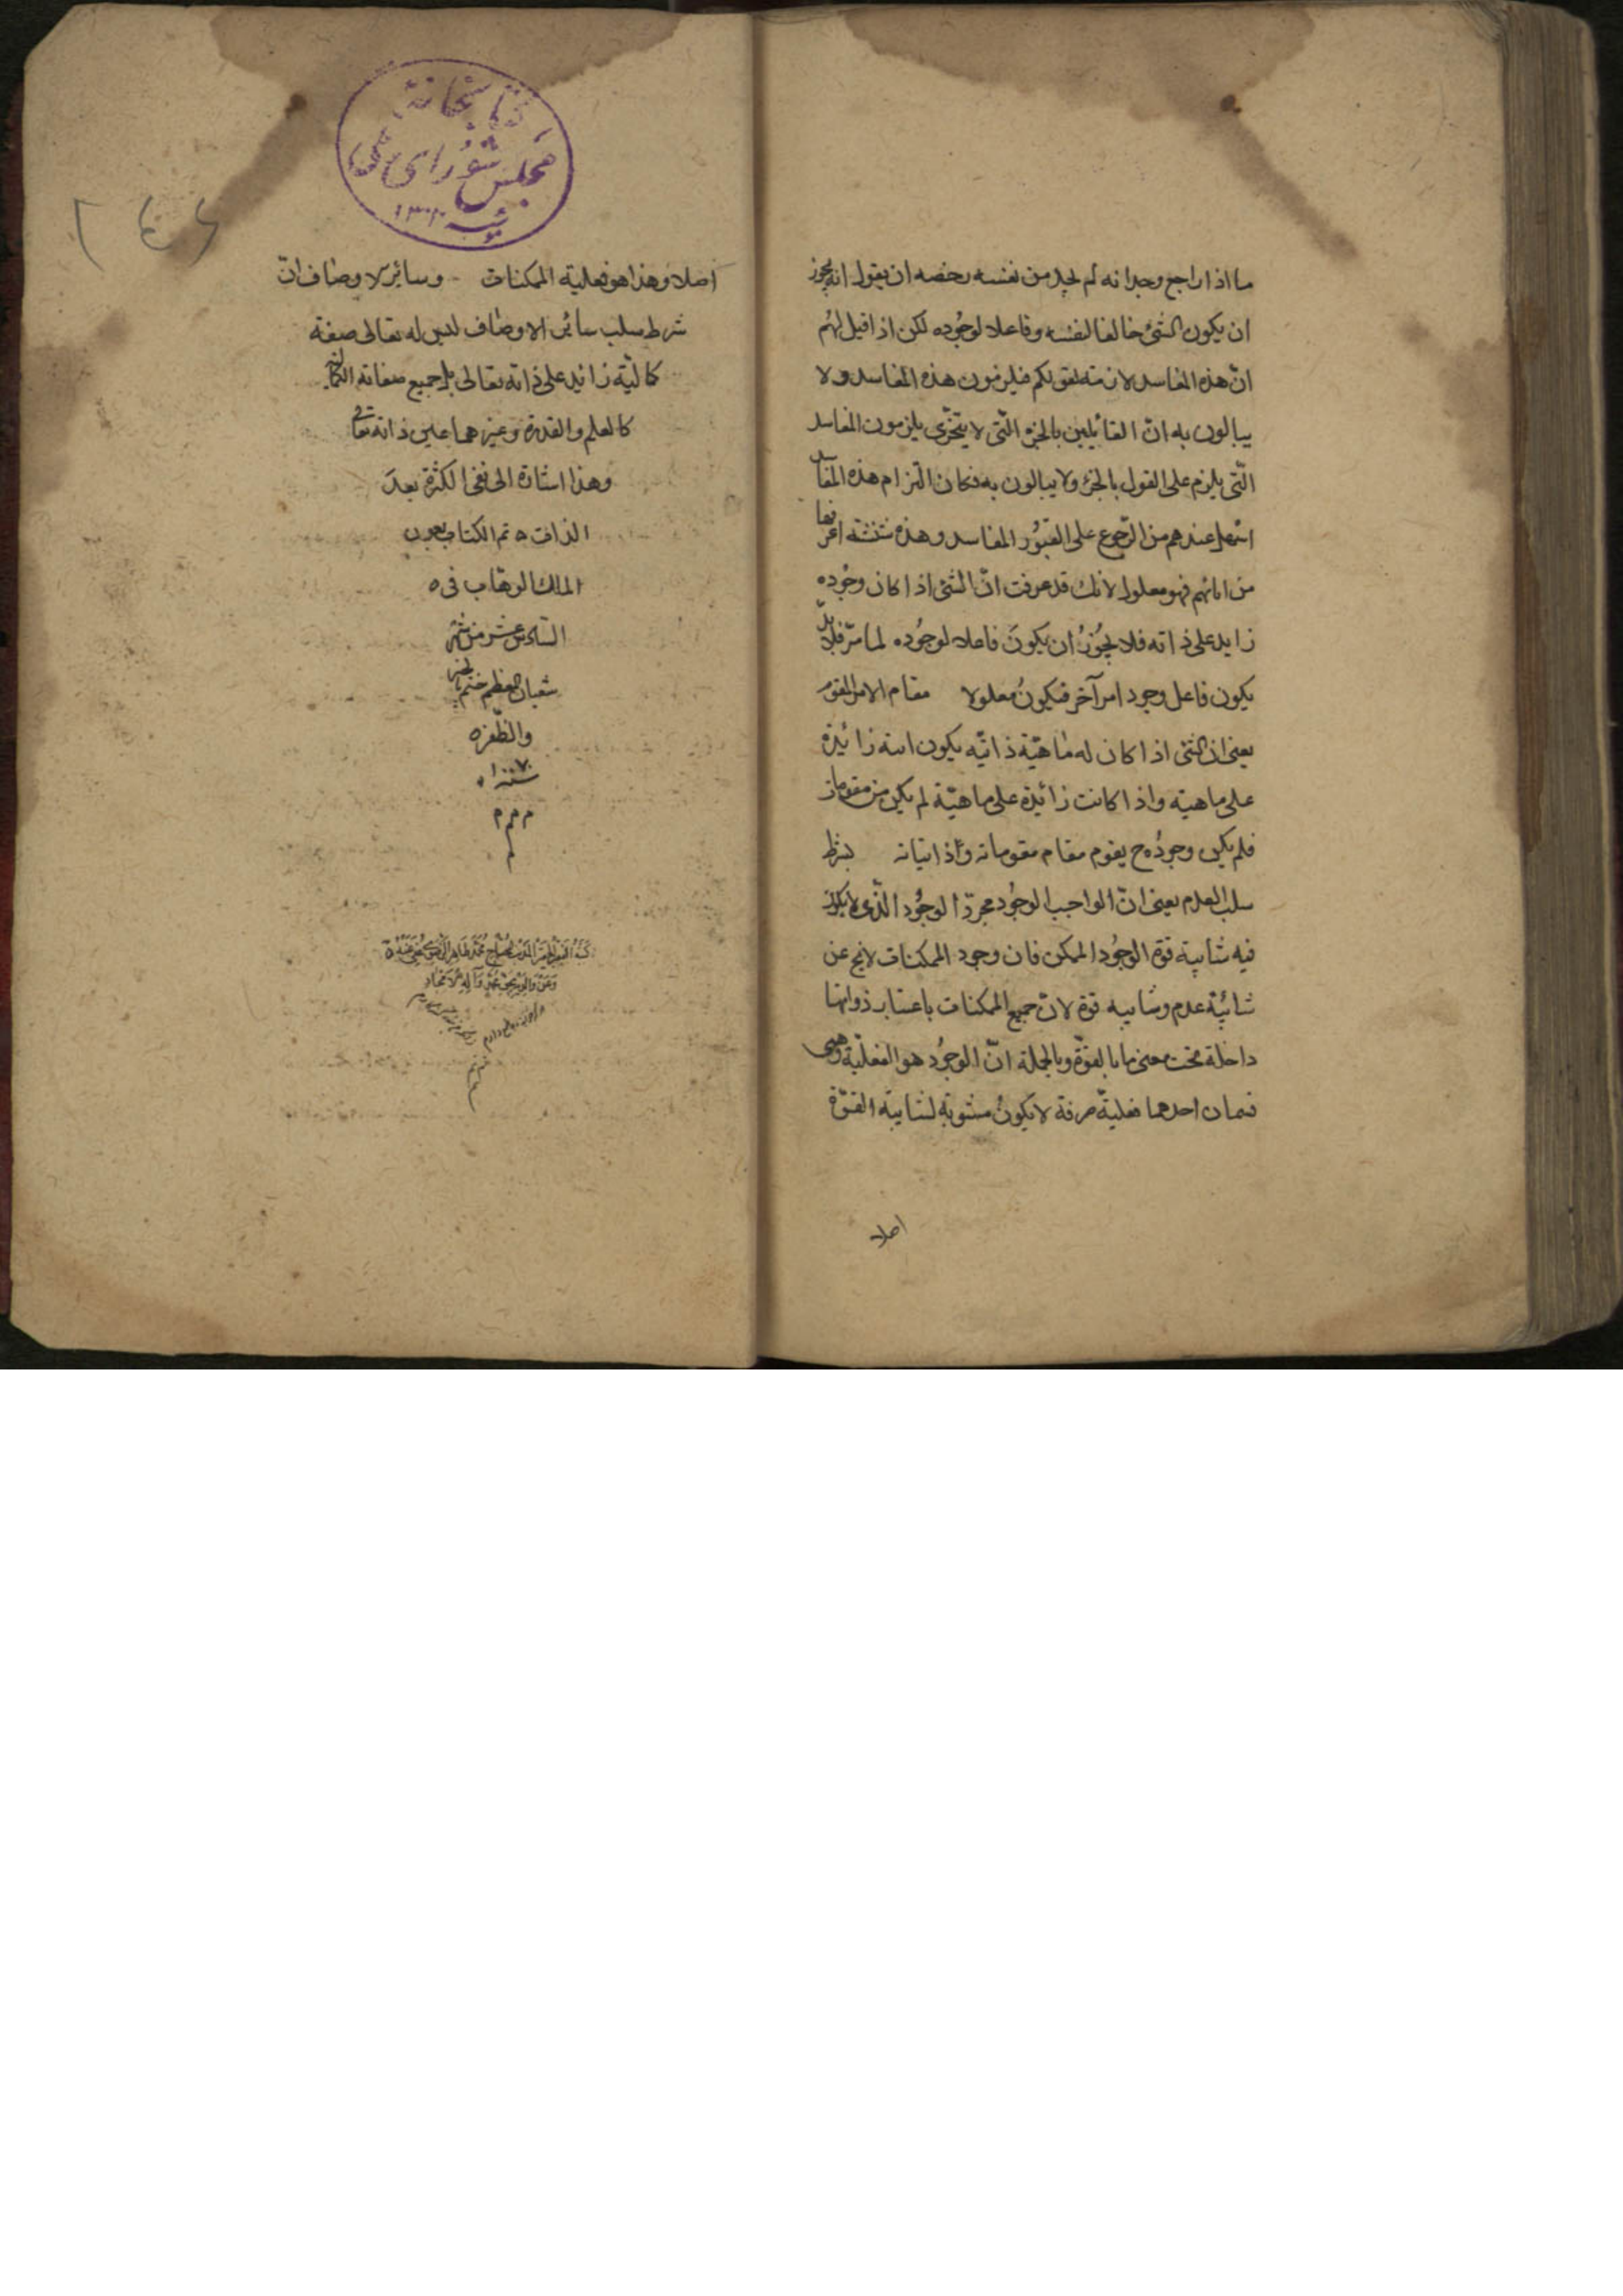 ما اذا راجع وجدانه لم يجد من نفسه رخصه ان يقول انه يجوز
ان يكون الشئ خالفا لنفسه وفاعلا لوجوده لكن اذا قيل لهم
انّ هذه المفاسد لازمة لقولكم فيلزمون هذه المفاسد ولا
يبالون به انّ القائيلين بالجزء الّتى لا يتجزّى يلزمون المفاسد
الّتى يلزم على القول بالجزء ولا يبالون به فكان التزام هذه المفاسد
اسهل عندهم من الرّجوع على القبور المفاسد وهذه شنشنة اعرفها
من اباءهم فهو معلول لانك قد عرفت انّ الشئ اذا كان وجوده
زايد على ذاته فلا يجوز ان يكون فاعلا لوجوده لما مرّ فلا بدّ
يكون فاعل وجود امر آخر فيكون معلولا مقام الامر المقوم
يعنى ان الشئ اذا كان له ماهيّة ذاتيّه يكون انيته زائدة
على ماهيته واذا كانت زائدة على ماهيّة لم يكن من مقوماته
فلم يكن وجوده ح يقوم مقام مقوماته وذاتياته بشرط
سلب العدم يعنى انّ الواجب الوجود مجرّد الوجود الّذى لا يكون
فيه شايبة قوة الوجود الممكن فان وجود الممكنات لا يخ عن
شائبة عدم وشايبه قوة لانّ جميع الممكنات باعتبار ذواتها
داخلة تحت معنى ما بالقوّة وبالجملة انّ الوجود هو الفعليّة وهى
قسمان احدهما فعليّة صرفة لا يكون مشوبة لشايبة القوّة
اصلا
كتابخانهٔ
مجلس شورای ملی
۱۳۰۲
اصلا وهذا هو فعلية الممكنات وسائر الاوصاف انّ
شرط سلب سائر الاوصاف ليس له تعالى صفة
كماليّة زائيد على ذاته تعالى بل جميع صفاته الكمالية
كالعلم والقدرة وغيرهما عين ذاته تعالى
وهذا اشارة الى نفى الكثرة بعد
الذات ه تم الكتاب بعون
الملك الوهّاب فى ه
السّادس عشر من شهر
شعبان المعظم ختم بالخير
والظّفر ه
سنة ۱۰۰۷
م م م
م
وعن والديه بحق محمد وآله الامجاد